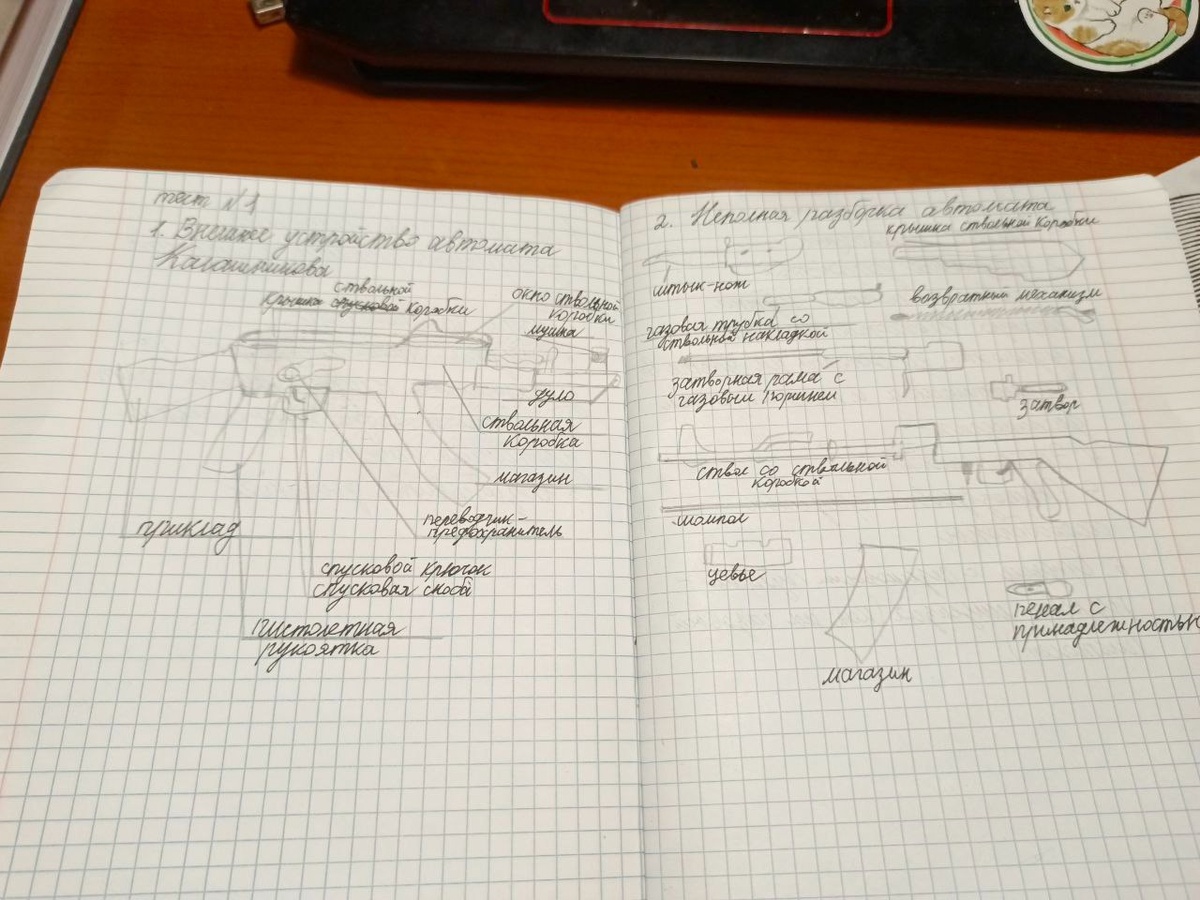 тест №1
1. Внешнее устройство автомата
Калашникова
ствольной
крышка спусковой коробки
окно ствольной
коробки
мушка
дуло
ствольная
коробка
магазин
переводчик-
предохранитель
приклад
спусковой крючок
спусковая скоба
пистолетная
рукоятка
2. Неполная разборка автомата
крышка ствольной коробки
штык-нож
возвратный механизм
газовая трубка со
ствольной накладкой
затворная рама с
газовым поршнем
затвор
ствол со ствольной
коробкой
шомпол
цевье
пенал с
принадлежностью
магазин